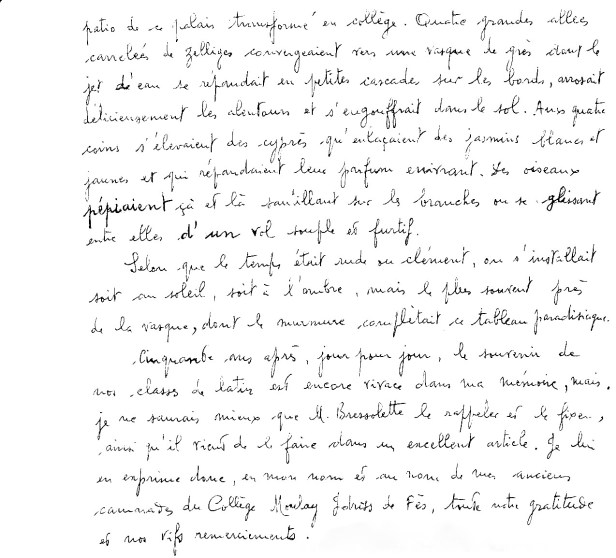 patio de ce palais transformé en collège. Quatre grandes allées
carrelées de zelliges convergeaient vers une vasque de grès dont le
jet d'eau se répandait en petites cascades sur les bords, arrosait
délicieusement les alentours et s'engouffrait dans le sol. Aux quatre
coins s'élevaient des cyprès qu'enlaçaient des jasmins blancs et
jaunes et qui répandaient leur parfum enivrant. Les oiseaux
pépiaient çà et là sautillant sur les branches ou se glissant
entre elles d'un vol souple et furtif.
Selon que le temps était rude ou clément, on s'installait
soit au soleil, soit à l'ombre, mais le plus souvent près
de la vasque, dont le murmure complétait ce tableau paradisiaque.
Cinquante ans après, jour pour jour, le souvenir de
nos classes de latin est encore vivace dans ma mémoire, mais,
je ne saurais mieux que M. Bressolette le rappeler et le fixer,
ainsi qu'il vient de le faire dans un excellent article. Je lui
en exprime donc, en mon nom et au nom de mes anciens
camarades du Collège Moulay Idriss de Fès, toute notre gratitude
et nos vifs remerciements.